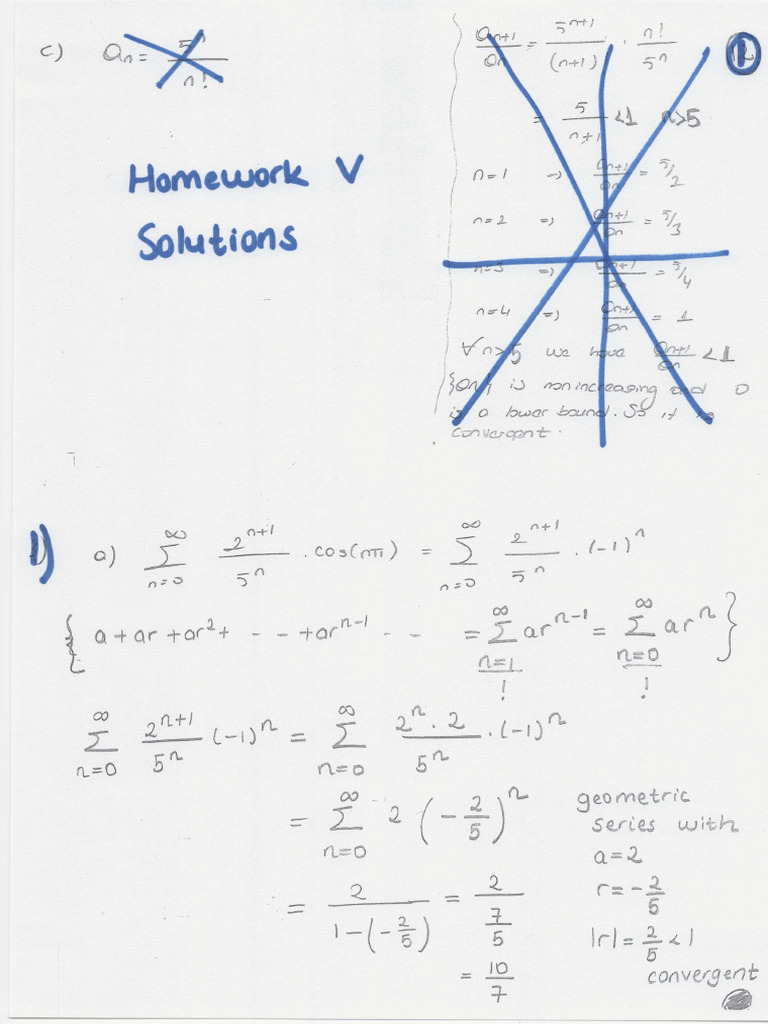 c) aₙ = 5ⁿ / n!
aₙ₊₁/aₙ = 5ⁿ⁺¹/(n+1) · n!/5ⁿ
1
= 5/(n+1) < 1 n>5
n=1 ⇒ aₙ₊₁/aₙ = 5/2
n=2 ⇒ aₙ₊₁/aₙ = 5/3
n=3 ⇒ aₙ₊₁/aₙ = 5/4
n=4 ⇒ aₙ₊₁/aₙ = 1
∀n>5 we have aₙ₊₁/aₙ < 1
{aₙ} is nonincreasing and 0
is a lower bound. So it is
convergent.
Homework V
Solutions
1) a) ∑_{n=0}^{∞} 2ⁿ⁺¹/5ⁿ · cos(nπ) = ∑_{n=0}^{∞} 2ⁿ⁺¹/5ⁿ · (-1)ⁿ
{ a + ar + ar² + - - - + arⁿ⁻¹ - - = ∑_{n=1}^{∞} arⁿ⁻¹ = ∑_{n=0}^{∞} arⁿ }
! !
∑_{n=0}^{∞} 2ⁿ⁺¹/5ⁿ (-1)ⁿ = ∑_{n=0}^{∞} 2ⁿ · 2/5ⁿ · (-1)ⁿ
= ∑_{n=0}^{∞} 2 (-2/5)ⁿ
= 2/(1-(-2/5)) = 2/(7/5)
= 10/7
geometric
series with
a=2
r=-2/5
|r|=2/5 < 1
convergent